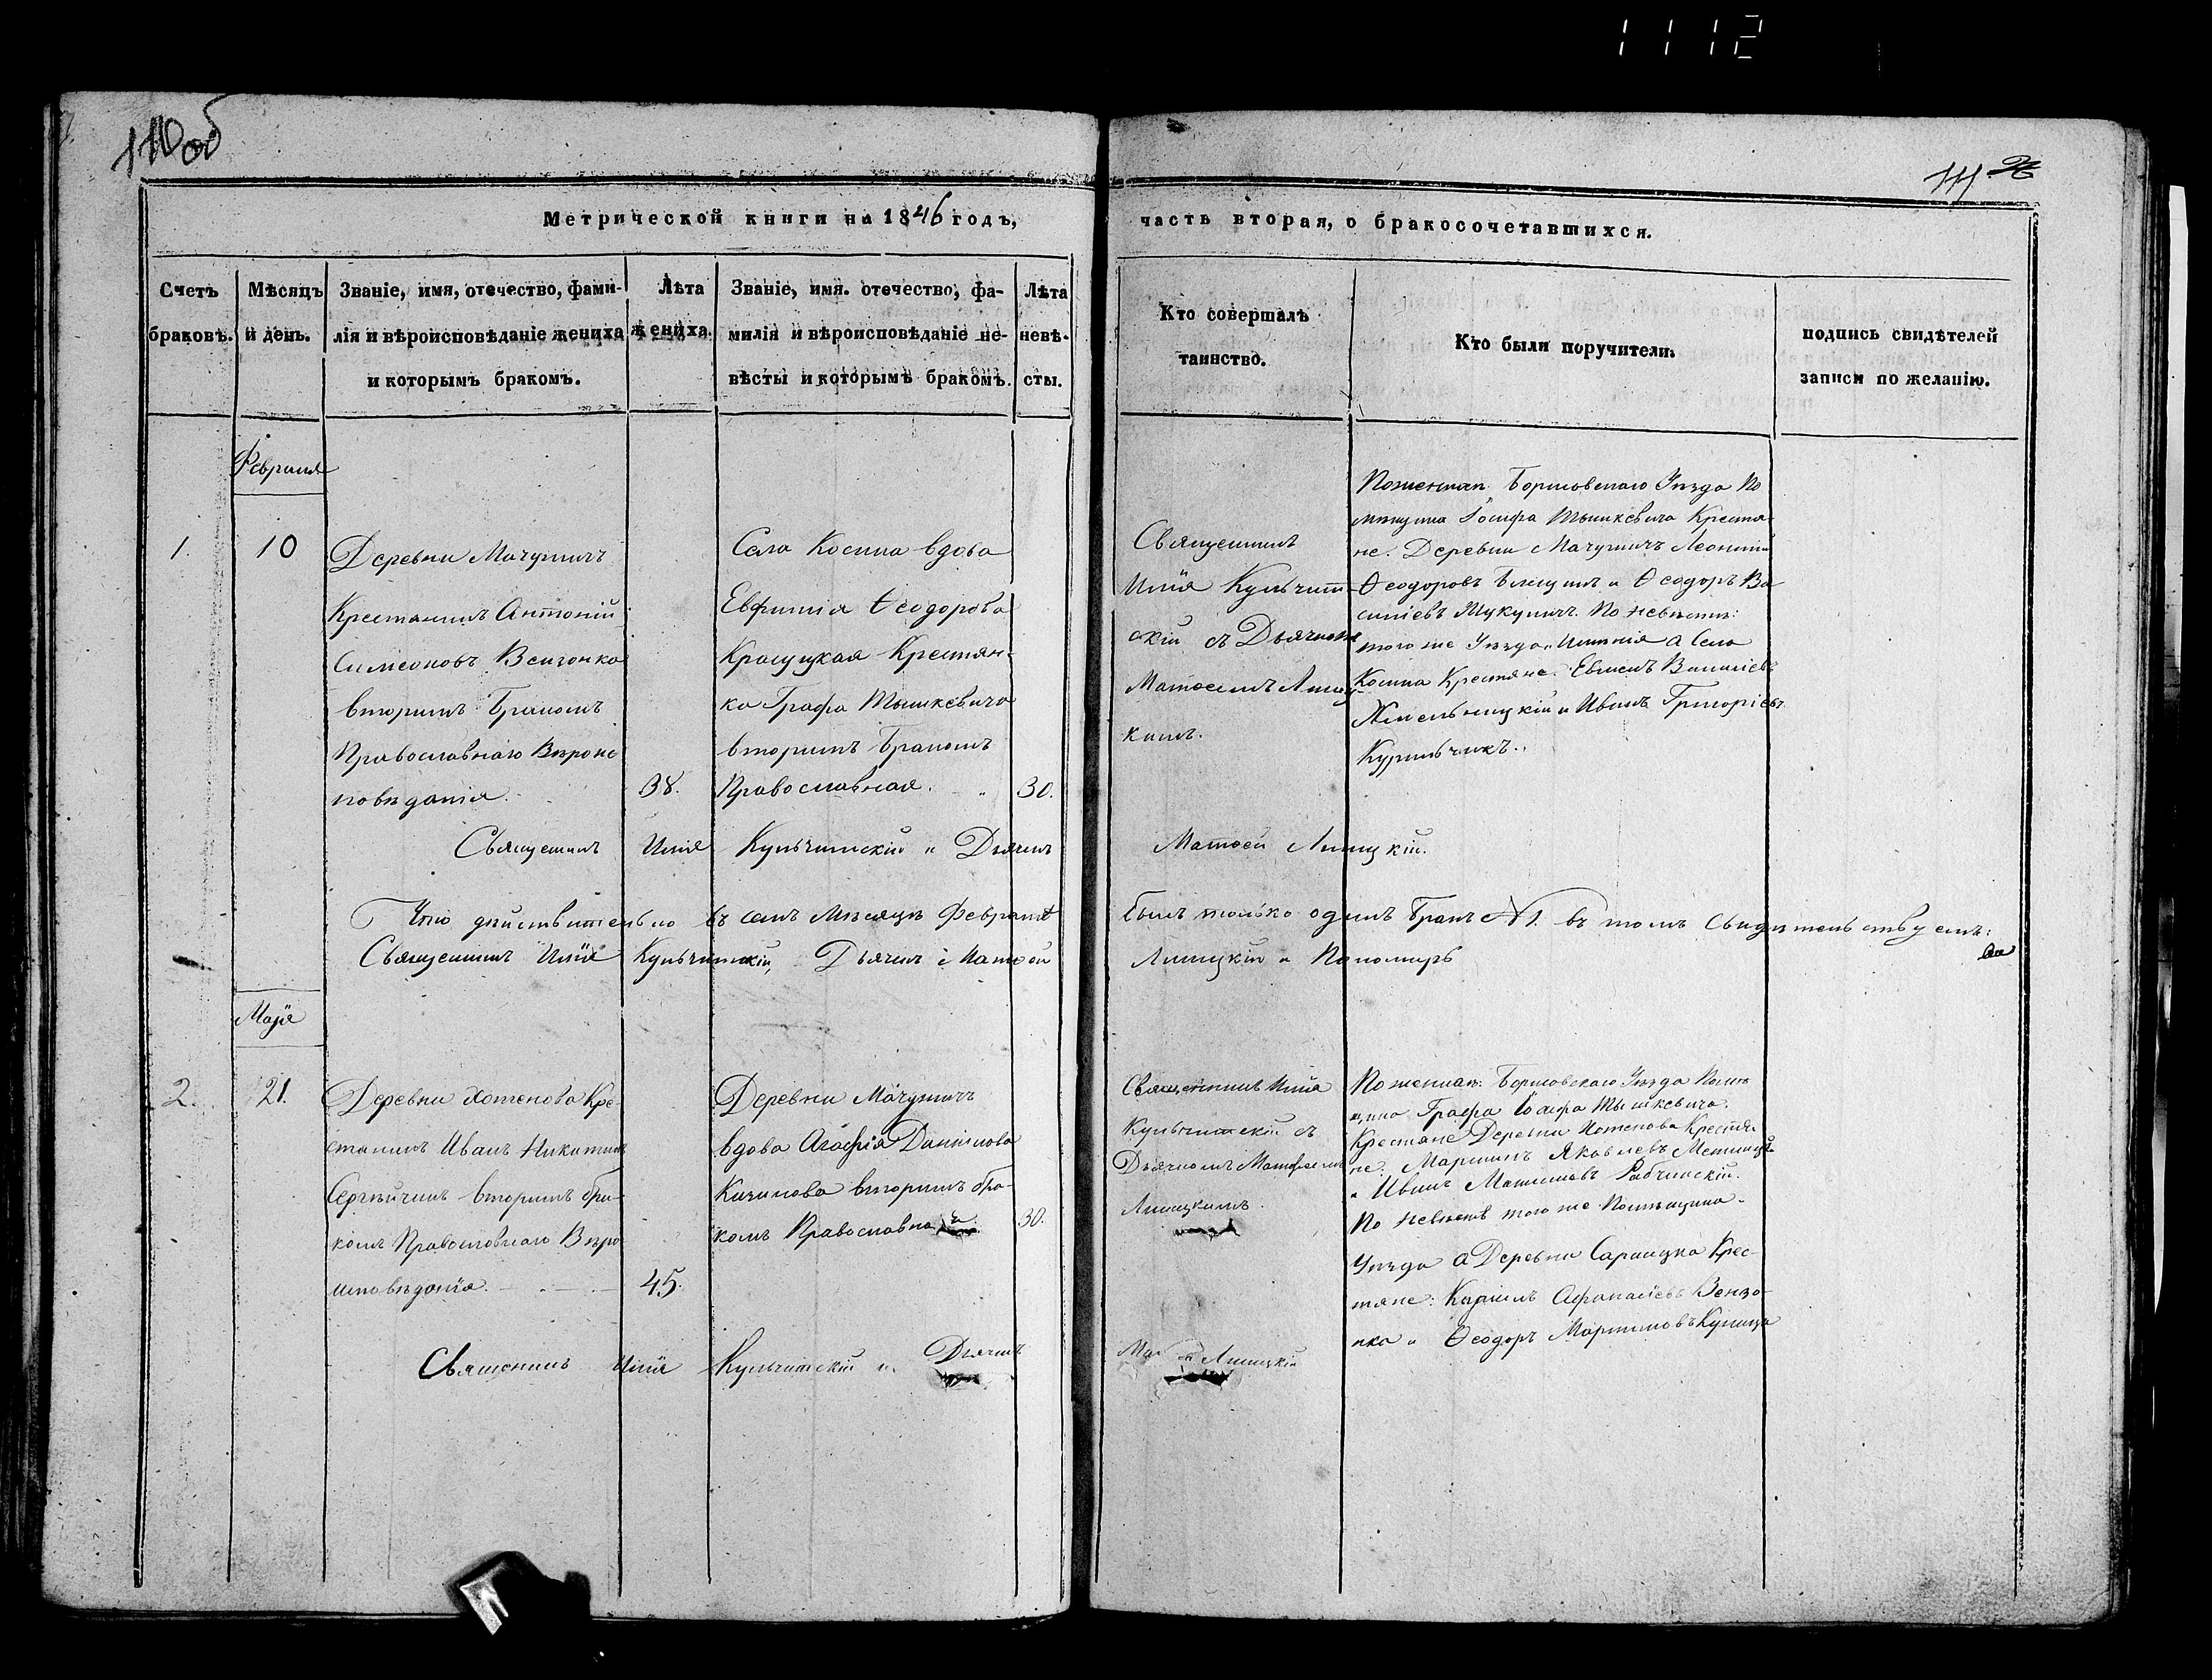 1112
110об
111
Метрической книги на 1846 годъ,
часть вторая, о бракосочетавшихся.
Счетъ браковъ.
Мѣсяцъ и день.
Званіе, имя, отечество, фами-
лія и вѣроисповѣданіе жениха
и которымъ бракомъ.
Лѣта
жениха.
Званіе, имя. отечество, фа-
милія и вѣроисповѣданіе не-
вѣсты и которымъ бракомъ.
Лѣта
невѣ-
сты.
Кто совершалъ
таинство.
Кто были поручители.
подпись свидѣтелей
записи по желанію.
Февраля
1.
10
Деревни Мачужичъ
Крестянинъ Антоній
Симеоновъ Вензонка
вторимъ Бракомъ
Православнаго Вѣроис
повѣданія.
38.
Села Косина вдова
Евфимія Ѳеодорова
Красуцкая Крестян-
ка Графа Тышкевича
вторимъ Бракомъ
Православная.
30.
Священникъ
Илія Кульчит-
скій съ Дьячкомъ
Матѳеемъ Лищ
кимъ.
По женихѣ Борисовскаго Уѣзда По
мѣщика Іосифа Тышкевича Крестя-
не. Деревни Мачужичъ Леонтій
Ѳеодоровъ и Ѳеодоръ Ва
силіевъ По невѣстѣ:
того же Уѣзда Имѣнія а Села
Косина Крестяне. Василіевъ
и Иванъ Григоріевъ
Курильчикъ.
Священникъ Илія Кульчитскій и Дьячекъ
Матѳей Лищкій.
Что дѣйствительно въ семъ Мѣсяцѣ Февралѣ
былъ только одинъ Бракъ №1. въ томъ Свидѣтельствуемъ:
Священникъ Илія Кульчитскій, Дьячекъ Матѳей
Лищкій и Пономарь
Маія
2.
21.
Деревни Хотенова Кре-
стянинъ Иванъ Никитинъ
Сергѣйчикъ вторимъ бра-
комъ Православнаго Вѣро
исповѣданія.
45.
Деревни Мачужичъ
вдова Агафія Даніилова
вторимъ бра-
комъ Православная
30.
Священникъ Илія
Кульчитскій съ
Дьячкомъ Матфеемъ
Лищкимъ.
По женихѣ: Борисовскаго Уѣзда Помѣ
щика Графа Іосифа Тышкевича.
Крестяне Деревни Хотенова Крестя-
не: Мартинъ Яковлевъ
и Иванъ Рабчинскій.
По невѣстѣ того же Помѣщика
Уѣзда а Деревни Крес-
тяне: Карпъ Афанасіевъ Вензо-
нка и Ѳеодоръ Мартиновъ Куница
Священникъ Илія Кульчитскій и Дьячекъ
Лищкій